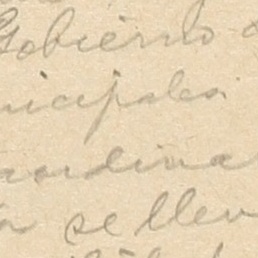 Gobierno
nicipales
aordina
se llev